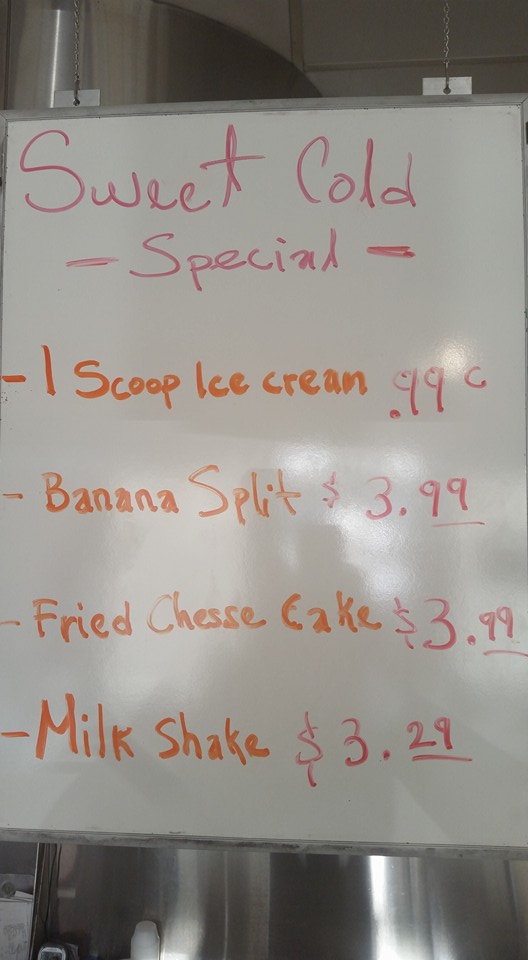 Sweet Cold
- Special -
- 1 Scoop Ice crean .99 c
- Banana Split $ 3.99
- Fried Chesse Cake $3.99
- Milk Shake $ 3.29